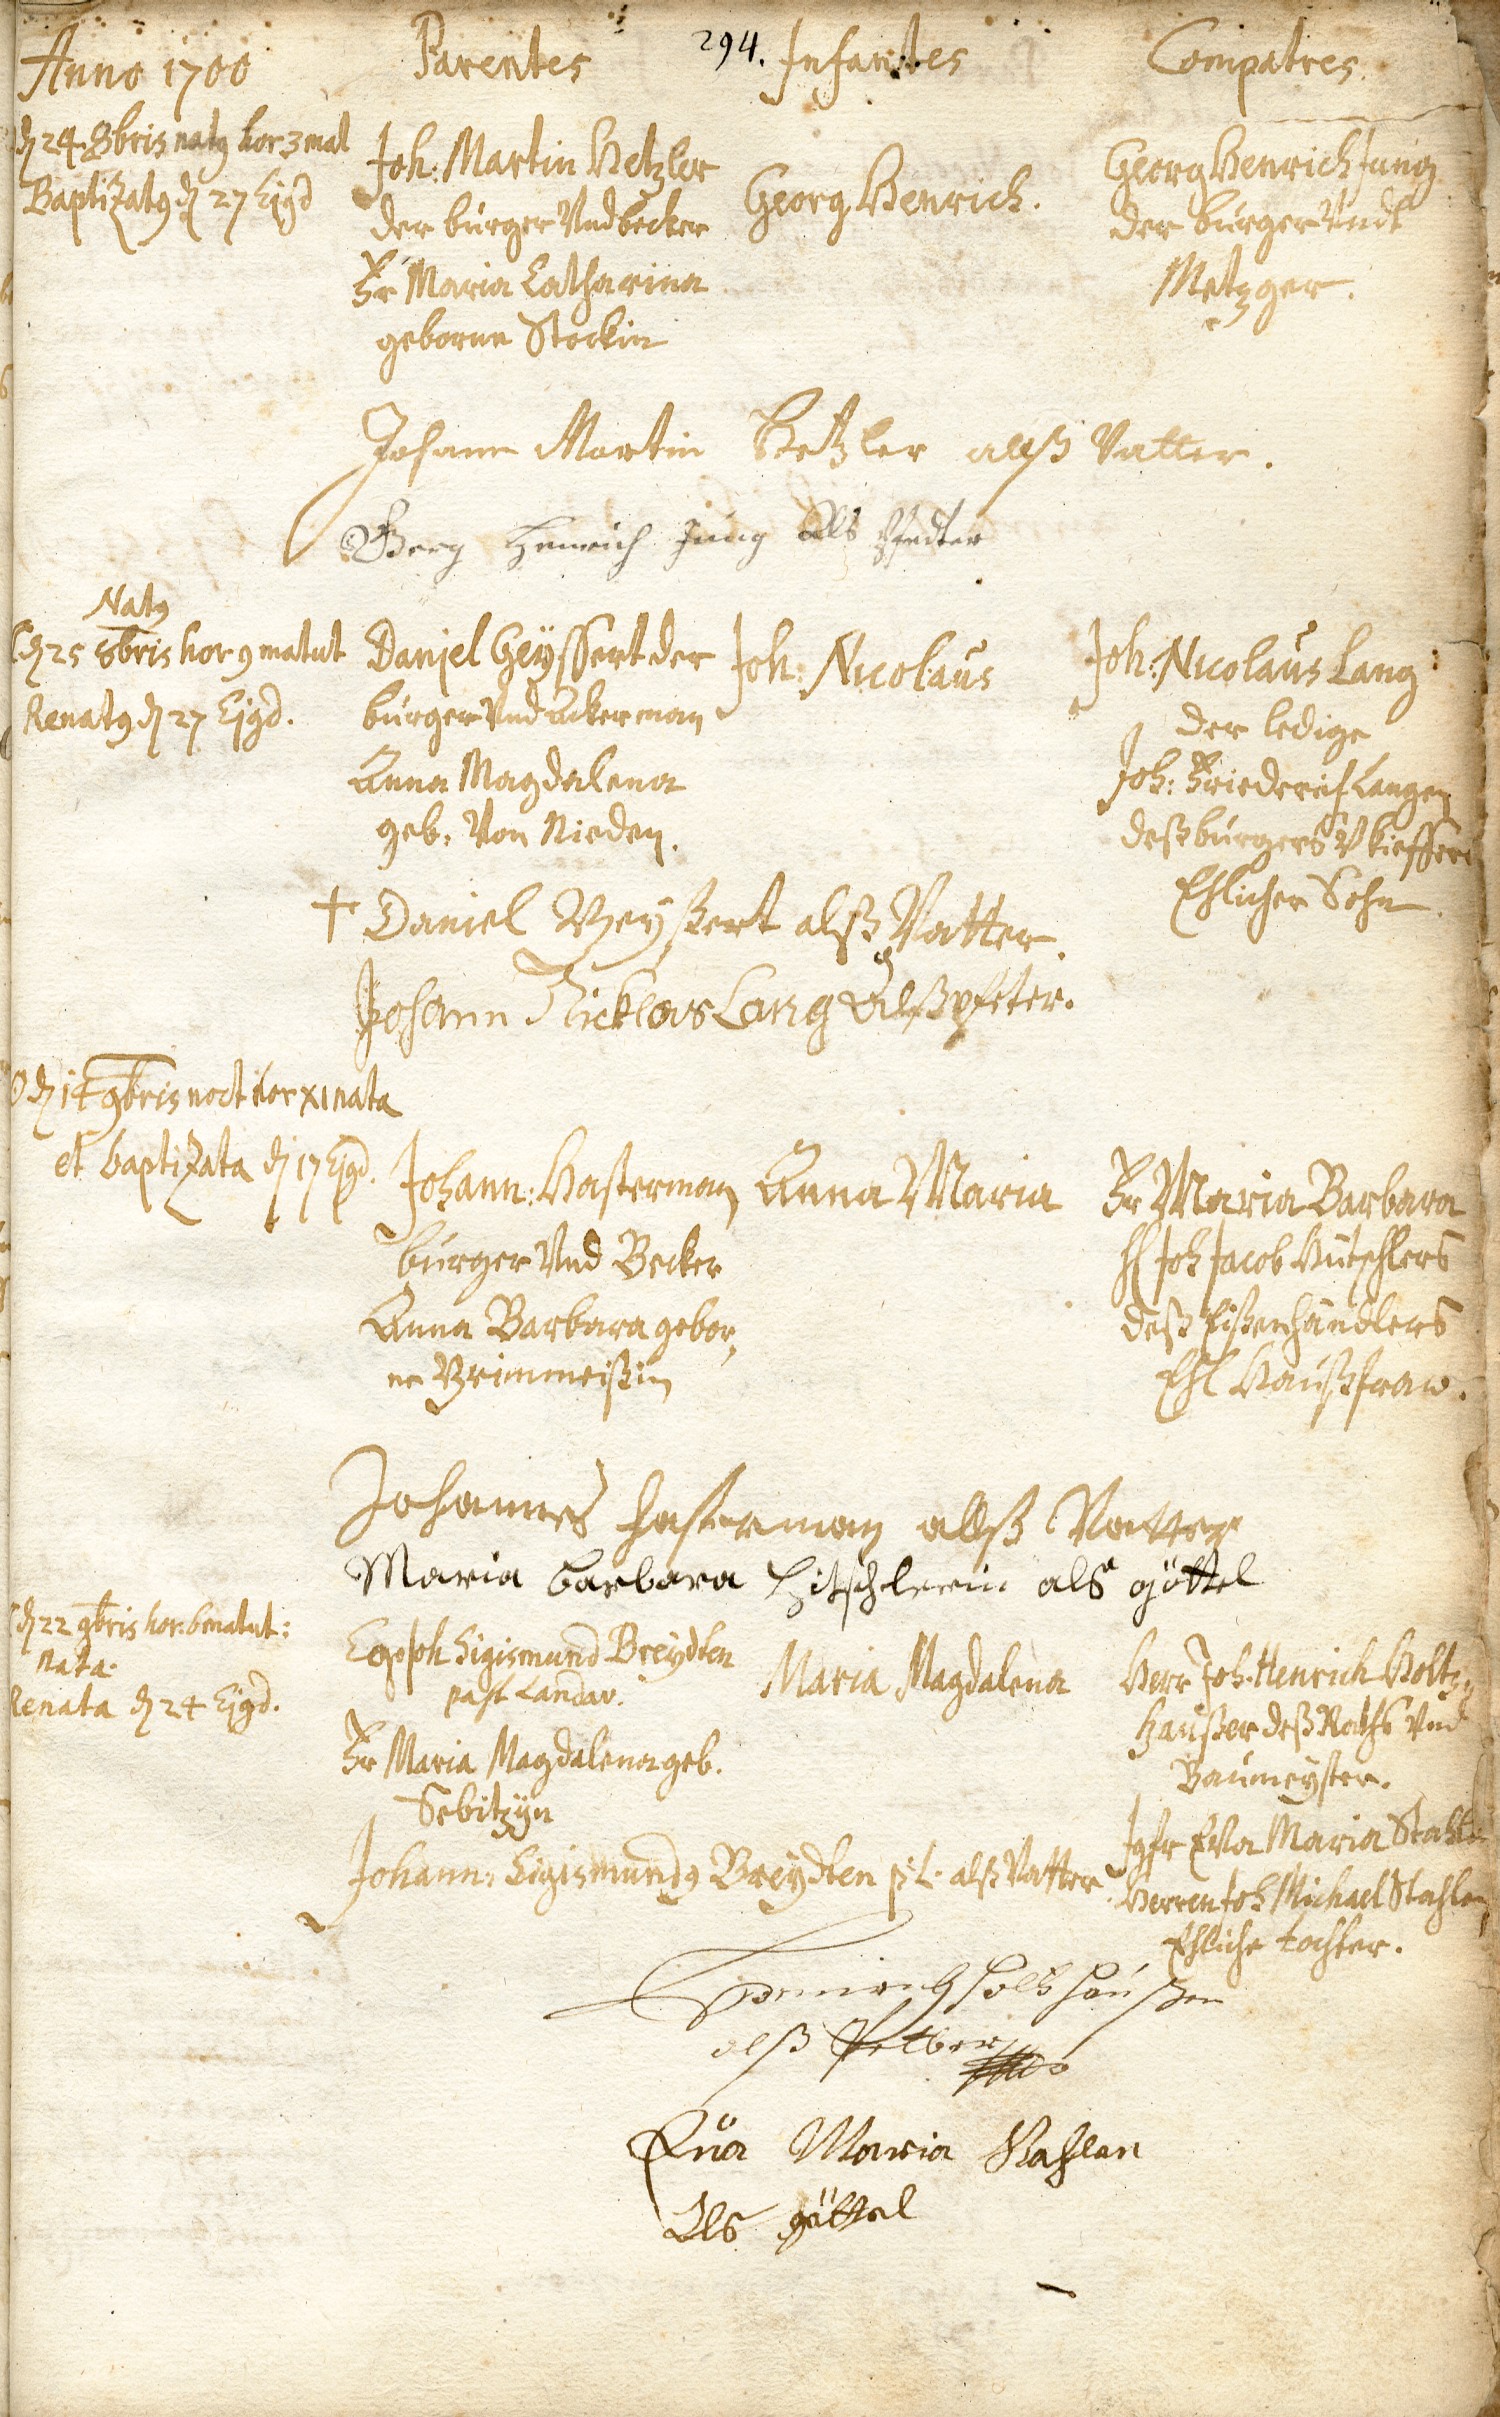 294.
Anno 1700
Parentes
Infantes
Compatres
d 24. 8bris natq hor 3 mat
Baptizatq d 27 Ejgd
Joh: Martin Hetzler
der burger Vnd becker
Fr Maria Catharina
geborne Stockin
Georg Henrich.
Georg Henrich Jung
der burger Vndt
Metzger.
Johann Martin Hetzler allß Vatter.
Georg Henrich Jung als Pfedter
Natq
d 25 8bris hor 9 matut
Renatq d 27 Ejgd.
Daniel Geyssert der
burger Vnd Ackerman
Anna Magdalena
geb. Von Nieden.
Joh: Nicolaus
Joh: Nicolaus Lang
der ledige
Joh: Friederich Langen
deß burgers V kieffers
Ehlicher Sohn
+ Daniel Geyßert alß Vatter.
Johann Nicklas Lang alß pfeter.
d 14 9bris noct hor XI nata
et baptizata d 17 Ejgd.
Johann: Hasterman
burger Vnd Becker
Anna Barbara gebor,
ne Grimmeißin
Anna Maria
Fr Maria Barbara
H Joh Jacob Hütschlers
deß Eißenhändlers
Ehl Haußfraw.
Johannes Hasterman allß Vatter
Maria barbara Hitschlerin als göttel
d 22 9bris hor: 6 matut:
nata.
Renata d 24 Ejgd.
Ego Joh Sigismund Breydten
past Landav.
Fr Maria Magdalena geb.
Sebitzyn
Maria Magdalena
Herr Joh. Henrich Holtz,
haußer deß Raths Vnd
Baumeyster.
Jgfr Eva Maria Stahlin
Herren Joh Michael Stahlen
Ehliche tochter.
Johann: Sigismundq Breydten p. L. alß Vatter
Henrich Holtzhaußer
alß Petter
Eua Maria Stahlen
Als göttel